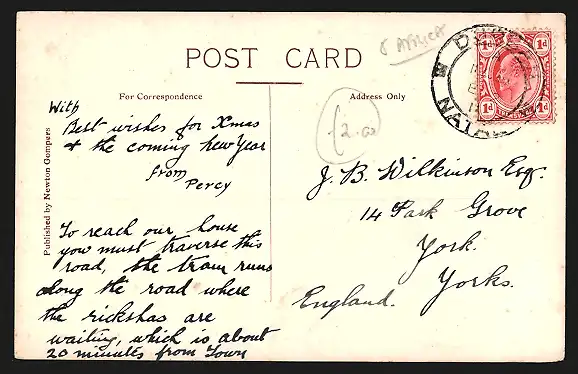 S Africa
POST CARD
For Correspondence
Address Only
With
Best wishes for Xmas
& the coming New Year
from
Percy
£2.00
To reach our house
you must traverse this
road, the tram runs
along the road where
the rickshas are
waiting, which is about
20 minutes from Town
J. B. Wilkinson Esq.
14 Park Grove
York.
Yorks.
England.
Published by Newton Gompers
1d 1d
1d 1d
NATAL